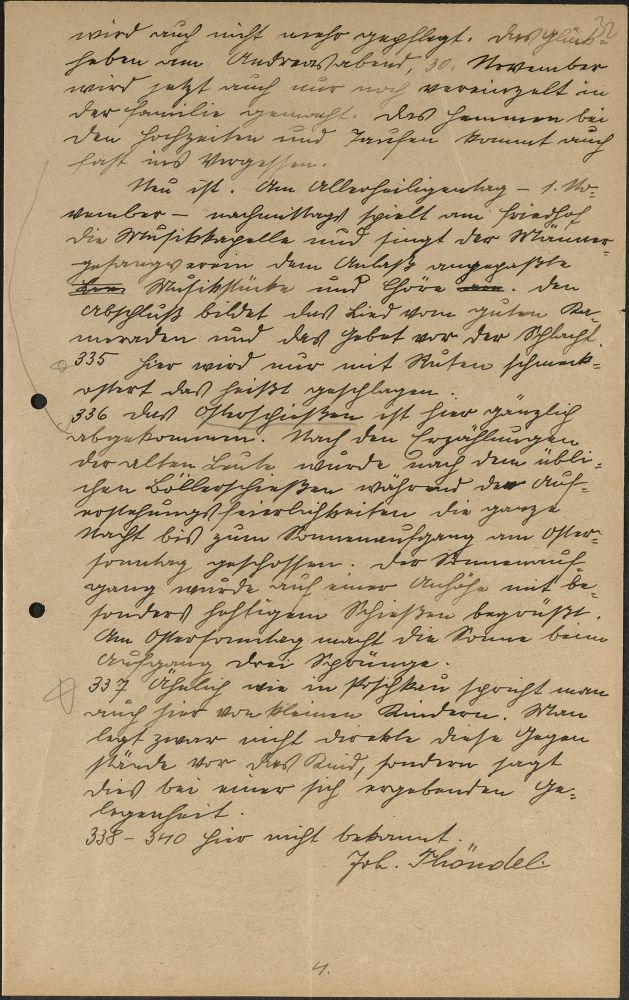 32
wird auch nicht mehr gepflegt. Das Glück-
heben am Andreasabend, 30. November
wird jetzt auch nur noch vereinzelt in
der Familie gemacht. Das Hemmen bei
den Hochzeiten und Taufen kommt auch
fast ins Vergessen.
Neu ist. Am Allerheiligentag – 1. No-
vember – nachmittags spielt am Friedhof
die Musikkapelle und singt der Männer-
gesangverein dem Anlaß angepaßte
Musikstücke und Chöre. Den
Abschluß bildet das Lied vom guten Ka-
meraden und das Gebet vor der Schlacht.
335 Hier wird nur mit Ruten schmeck-
ostert das heißt geschlagen.
336 Das Osterschießen ist hier gänzlich
abgekommen. Nach den Erzählungen
der alten Leute wurde nach dem übli-
chen Böllerschießen während der Auf-
erstehungsfeierlichkeiten die ganze
Nacht bis zum Sonnenaufgang am Oster-
sonntag geschossen. Der Sonnenauf-
gang wurde auf einer Anhöhe mit be-
sonders heftigem Schießen begrüßt.
Am Ostersonntag macht die Sonne beim
Aufgang drei Sprünge.
337 Ähnlich wie in Poschkau spricht man
auch hier von kleinen Kindern. Man
legt zwar nicht direkte diese Gegen
stände vor das Kind, sondern sagt
dies bei einer sich ergebenden Ge-
legenheit.
338 – 340 hier nicht bekannt.
Joh. Thöndel.
4.